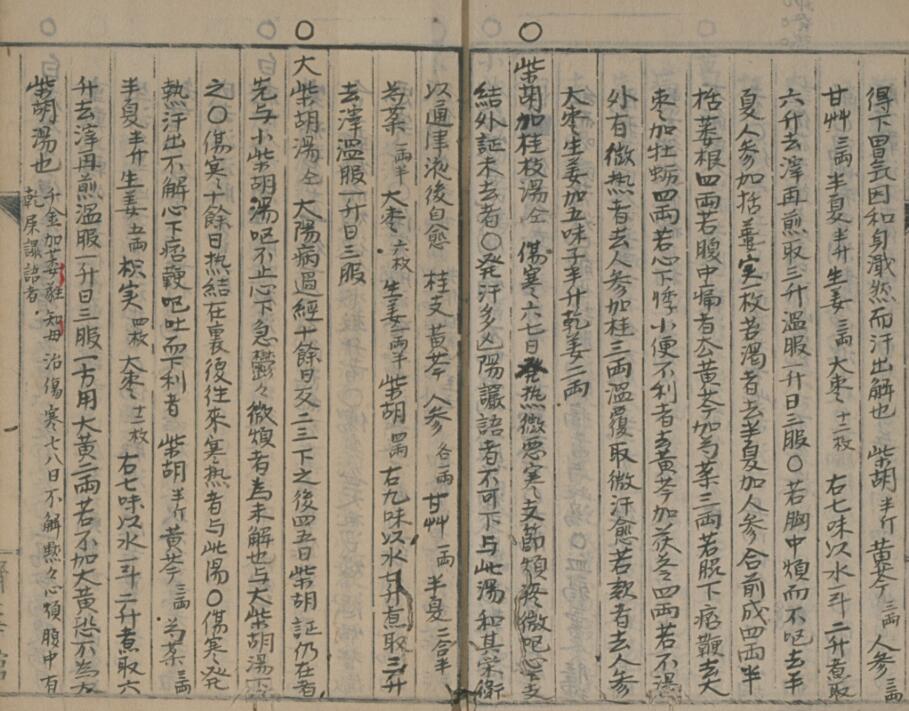 得下胃氣因和身濈然而汗出解也 柴胡半斤 黄芩三兩 人參三兩
甘艸三兩 半夏半升 生姜三兩 大棗十二枚 右七味以水一斗二升煮取
六升去滓再煎取三升温服一升日三服〇若胸中煩而不呕去半
夏人參加括蔞実一枚若渇者去半夏加人參合前成四兩半
括蒌根四兩若腹中痛者去黄芩加芍薬三兩若脇下痞鞕去大
棗加牡蛎四兩若心下悸小便不利者去黄芩加茯苓四兩若不渇
外有微热者去人參加桂三兩温覆取微汗愈若欬者去人參
大棗生姜加五味子半升乾姜二兩
〇柴胡加桂枝湯仝 傷寒六七日発热微悪寒支節煩疼微呕心下支
結外証未去者〇発汗多亡陽讝語者不可下与此湯和其栄衛
以通津液後自愈 桂支 黄芩 人參各一兩 甘艸一兩 半夏二合半
芍薬一兩半 大棗六枚 生姜一兩半 柴胡四兩 右九味以水七升煮取三升
去滓温服一升日三服
〇大柴胡湯仝 大陽病過經十餘日反二三下之後四五日柴胡証仍在者
先与小柴胡湯呕不止心下急鬱々微煩者為未解也与大柴胡湯下
之〇傷寒十餘日热結在裏復往來寒热者与此湯〇傷寒発
熱汗出不解心下痞鞕呕吐而下利者 柴胡半斤 黄芩三兩 芍薬三兩
半夏半升 生姜五兩 枳実四枚 大棗十二枚 右七味以水一斗二升煮取六
升去滓再煎温服一升日三服一方用大黄二兩若不加大黄恐不為大
柴胡湯也 千金加萎蕤知母治傷寒七八日不解黙々心煩腹中有
乾屎讝語者